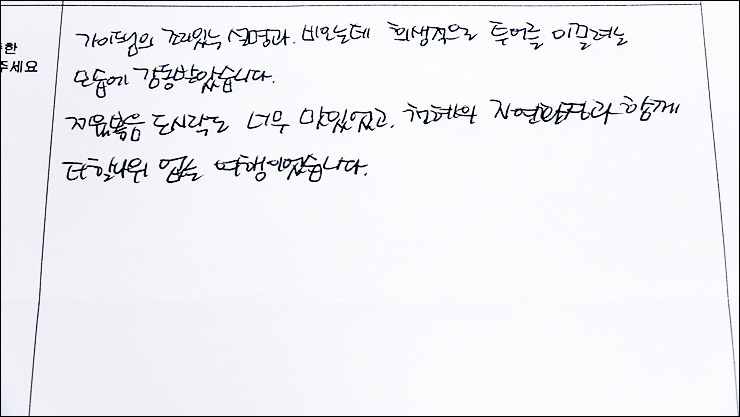 가이드님의 재미있는 설명과. 비오는데 희생적으로 투어를 이끌려는
모습에 감동받았습니다.
제육볶음 도시락도 너무 맛있었고, 천혜의 자연환경과 함께
더할나위 없는 여행이었습니다.
한
주세요